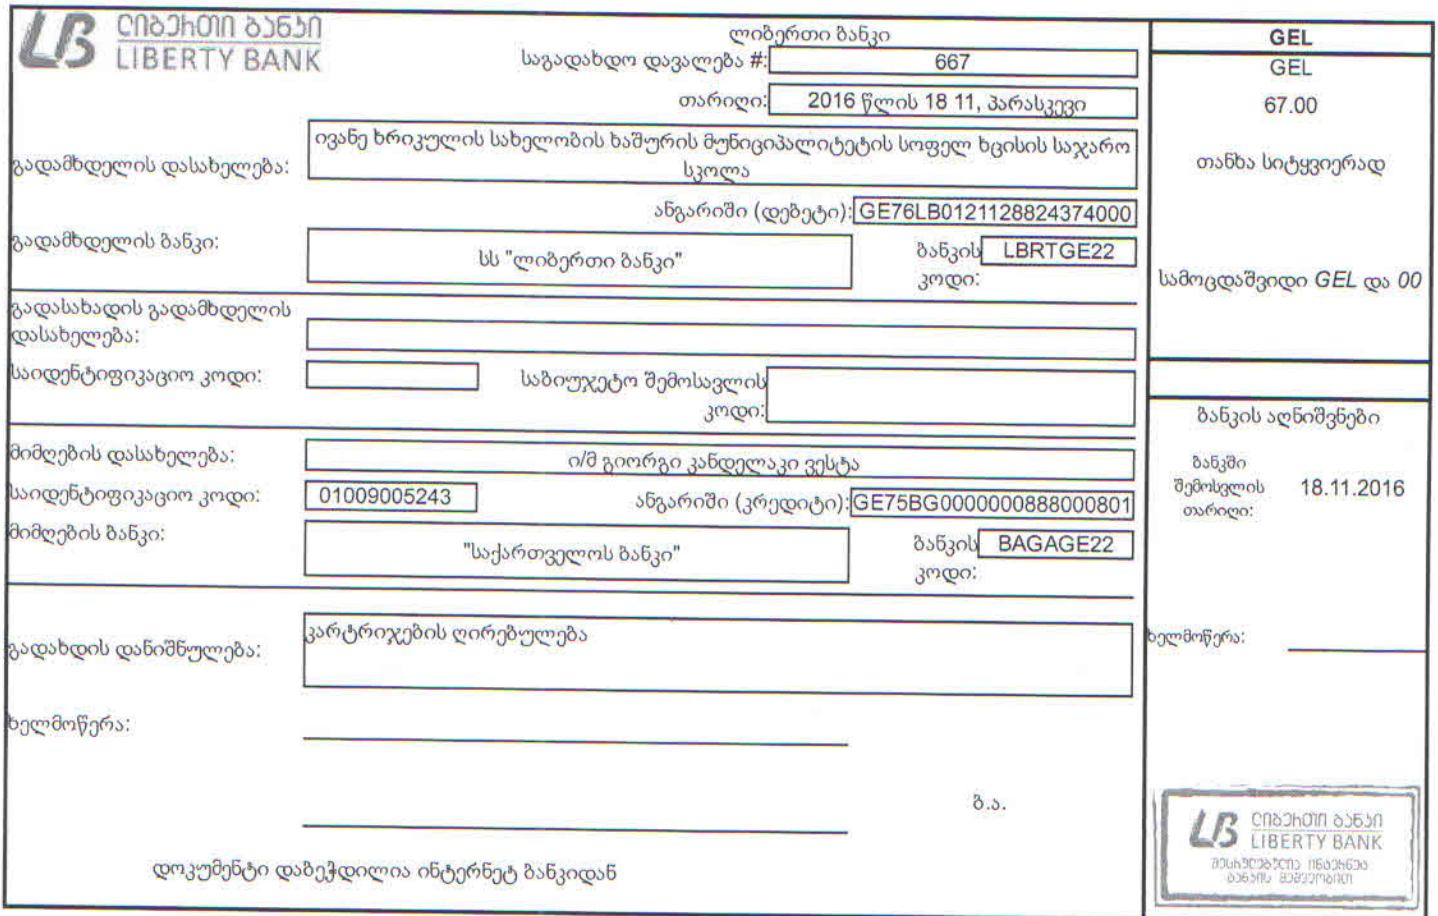 ლიბერთი ბანკი
LIBERTY BANK
ლიბერთი ბანკი
საგადახდო დავალება #: 667
თარიღი: 2016 წლის 18 11, პარასკევი
გადამხდელის დასახელება: ივანე ხრიკულის სახელობის ხაშურის მუნიციპალიტეტის სოფელ ხცისის საჯარო
სკოლა
ანგარიში (დებეტი): GE76LB0121128824374000
გადამხდელის ბანკი: სს "ლიბერთი ბანკი" ბანკის LBRTGE22
კოდი:
გადასახადის გადამხდელის
დასახელება:
საიდენტიფიკაციო კოდი: საბიუჯეტო შემოსავლის
კოდი:
მიმღების დასახელება: ი/მ გიორგი კანდელაკი ვესტა
საიდენტიფიკაციო კოდი: 01009005243 ანგარიში (კრედიტი): GE75BG0000000888000801
მიმღების ბანკი: "საქართველოს ბანკი" ბანკის BAGAGE22
კოდი:
გადახდის დანიშნულება: კარტრიჯების ღირებულება
ხელმოწერა:
ბ.ა.
დოკუმენტი დაბეჭდილია ინტერნეტ ბანკიდან
GEL
GEL
67.00
თანხა სიტყვიერად
სამოცდაშვიდი GEL და 00
ბანკის აღნიშვნები
ბანკში
შემოსვლის 18.11.2016
თარიღი:
ხელმოწერა:
ლიბერთი ბანკი
LIBERTY BANK
შესრულებულია ინტერნეტ
ბანკის მეშვეობით